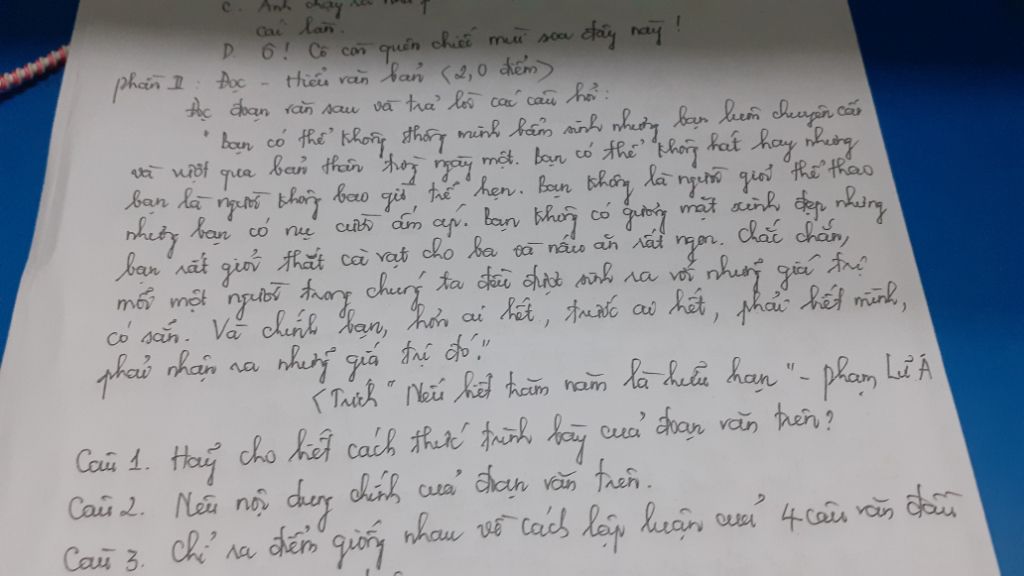 C. Anh chạy ra
cái làn.
D. Ô! Cô còn quên chiếc mùi soa đây này!
phần II: Đọc - Hiểu văn bản (2,0 điểm)
Đọc đoạn văn sau và trả lời các câu hỏi:
"Bạn có thể không thông minh bẩm sinh nhưng bạn luôn chuyên cần
và vượt qua bản thân từng ngày một. Bạn có thể không hát hay nhưng
bạn là người không bao giờ trễ hẹn. Bạn không là người giỏi thể thao
nhưng bạn có nụ cười ấm áp. Bạn không có gương mặt xinh đẹp nhưng
bạn rất giỏi thắt cà vạt cho ba và nấu ăn rất ngon. Chắc chắn,
mỗi một người trong chúng ta đều được sinh ra với những giá trị
có sẵn. Và chính bạn, hơn ai hết, trước ai hết, phải biết mình,
phải nhận ra những giá trị đó."
(Trích "Nếu biết trăm năm là hữu hạn" - phạm Lữ Â
Câu 1. Hãy cho biết cách thức trình bày của đoạn văn trên?
Câu 2. Nêu nội dung chính của đoạn văn trên.
Câu 3. Chỉ ra điểm giống nhau về cách lập luận của 4 câu văn đầu